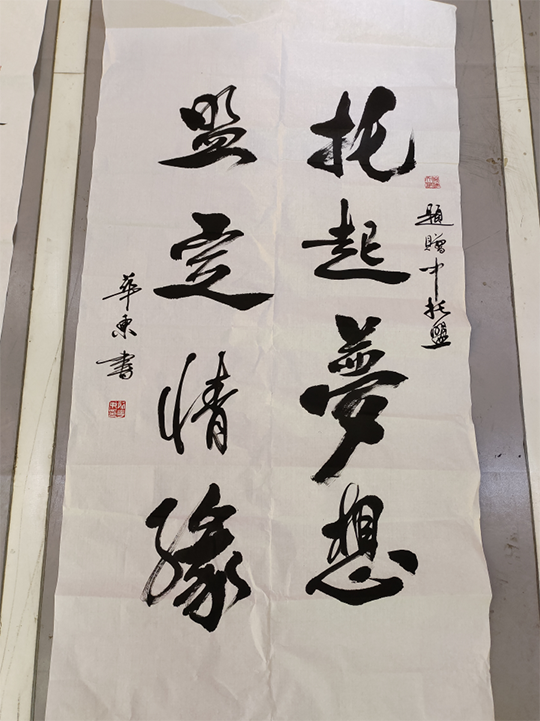 題贈中托盟
托起夢想
盟定情緣
華東書